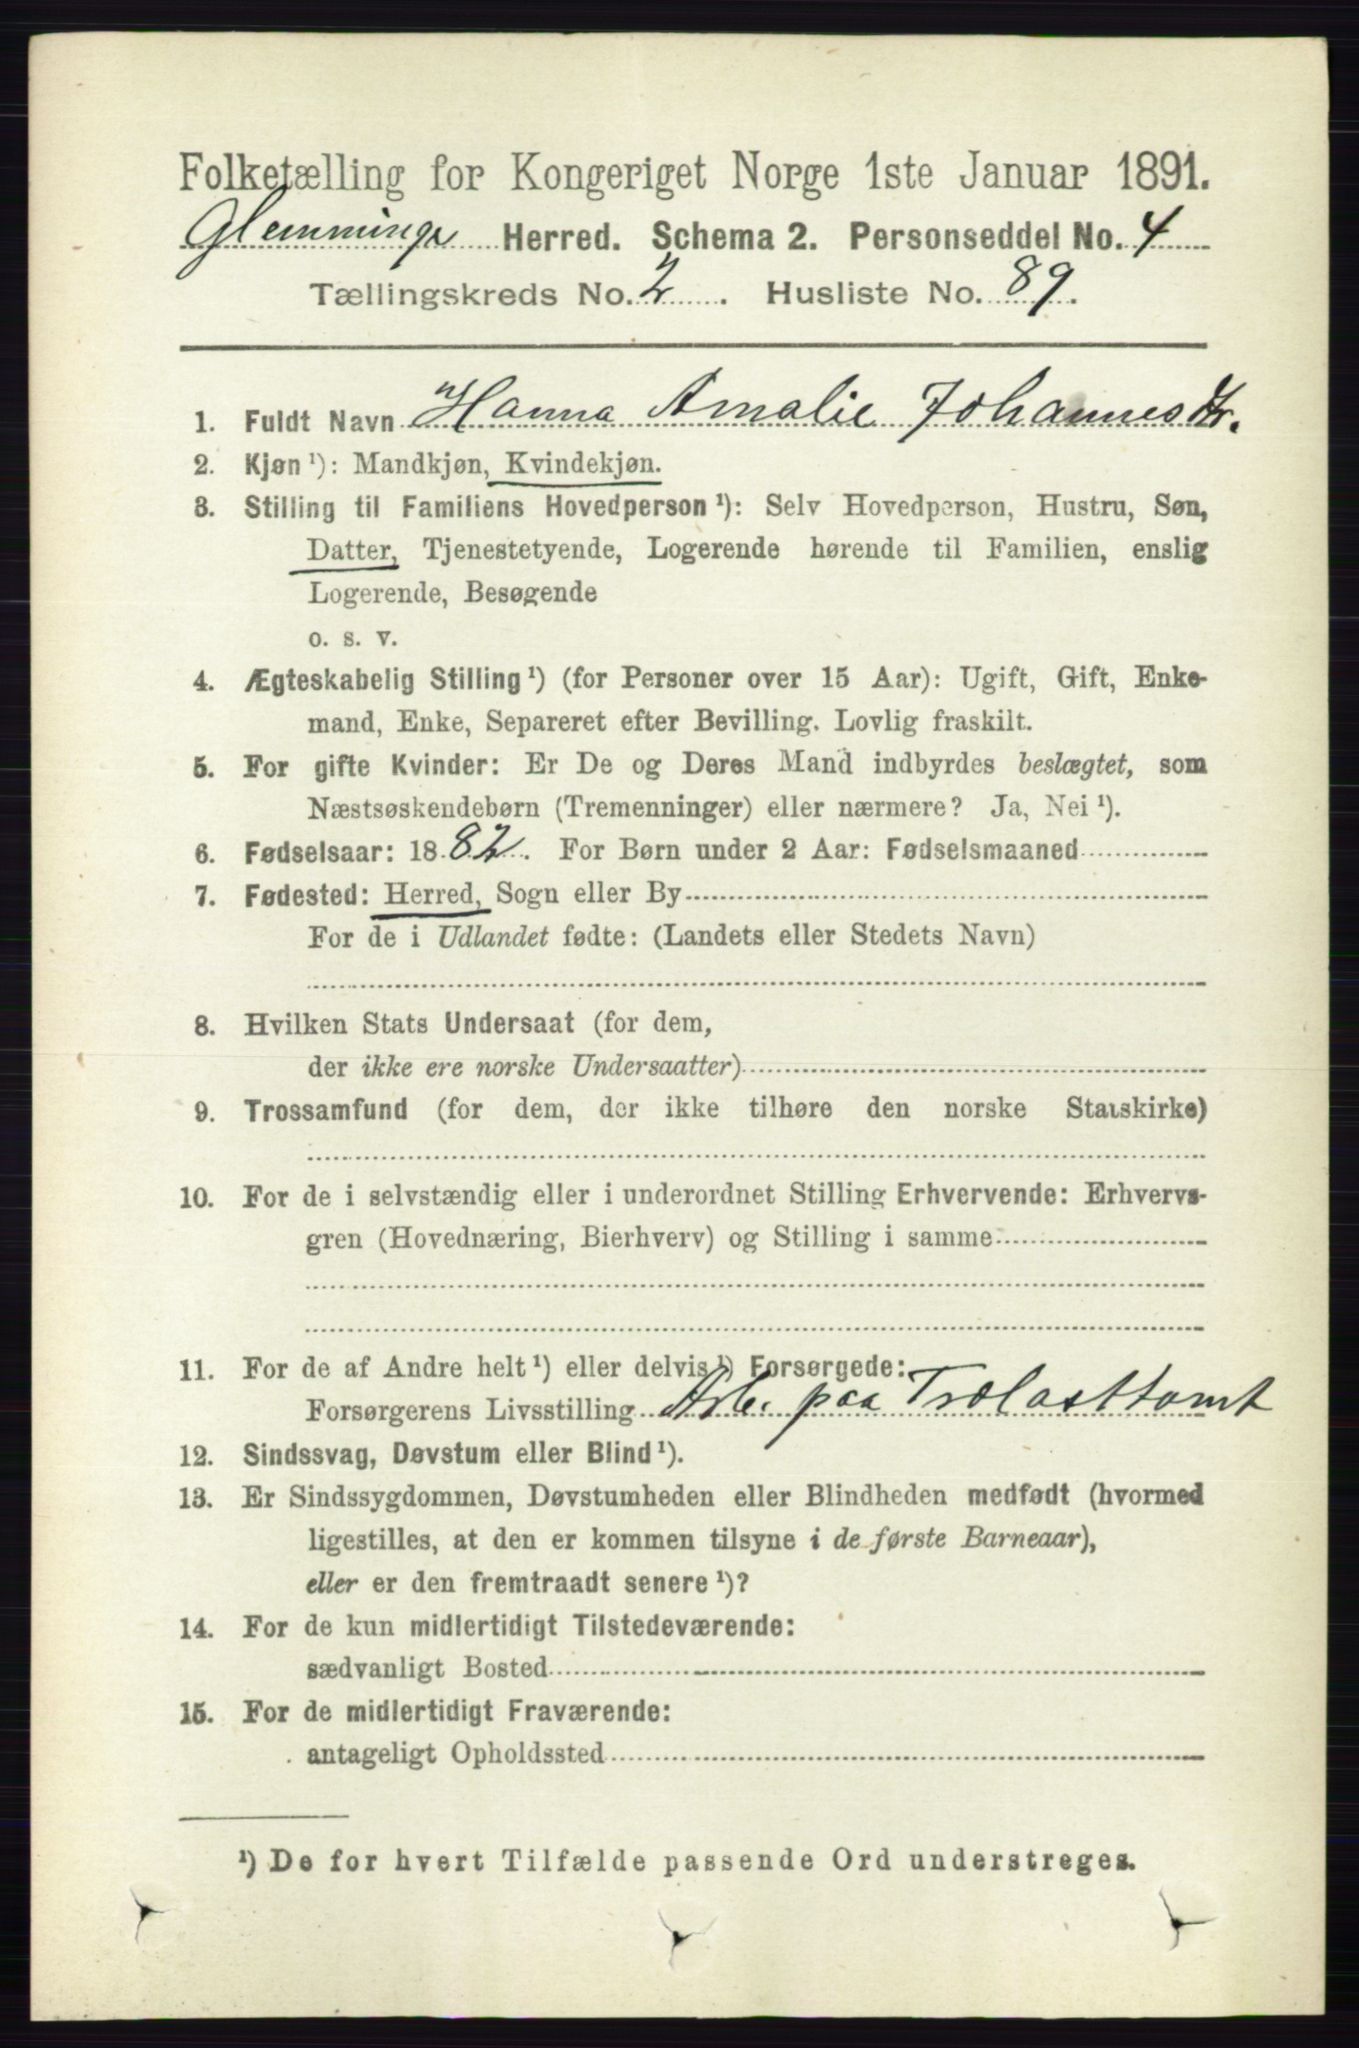 Folketælling for Kongeriget Norge 1ste Januar 1891.
Glemminge Herred. Schema 2. Personseddel No. 4
Tællingskreds No. 2. Husliste No. 89.
1. Fuldt Navn Hanna Amalie Johannesdtr.
2. Kjøn ¹): Mandkjøn, Kvindekjøn.
3. Stilling til Familiens Hovedperson ¹): Selv Hovedperson, Hustru, Søn,
Datter, Tjenestetyende, Logerende hørende til Familien, enslig
Logerende, Besøgende
o. s. v.
4. Ægteskabelig Stilling ¹) (for Personer over 15 Aar): Ugift, Gift, Enke-
mand, Enke, Separeret efter Bevilling. Lovlig fraskilt.
5. For gifte Kvinder: Er De og Deres Mand indbyrdes beslægtet, som
Næstsøskendebørn (Tremenninger) eller nærmere? Ja, Nei ¹).
6. Fødselsaar: 1882. For Børn under 2 Aar: Fødselsmaaned
7. Fødested: Herred, Sogn eller By
For de i Udlandet fødte: (Landets eller Stedets Navn)
8. Hvilken Stats Undersaat (for dem,
der ikke ere norske Undersaatter)
9. Trossamfund (for dem, der ikke tilhøre den norske Statskirke)
10. For de i selvstændig eller i underordnet Stilling Erhvervende: Erhvervs-
gren (Hovednæring, Bierhverv) og Stilling i samme
11. For de af Andre helt ¹) eller delvis ¹) Forsørgede:
Forsørgerens Livsstilling Arb. paa Trælasttomt
12. Sindssvag, Døvstum eller Blind ¹).
13. Er Sindssygdommen, Døvstumheden eller Blindheden medfødt (hvormed
ligestilles, at den er kommen tilsyne i de første Barneaar),
eller er den fremtraadt senere ¹)?
14. For de kun midlertidigt Tilstedeværende:
sædvanligt Bosted
15. For de midlertidigt Fraværende:
antageligt Opholdssted
¹) De for hvert Tilfælde passende Ord understreges.